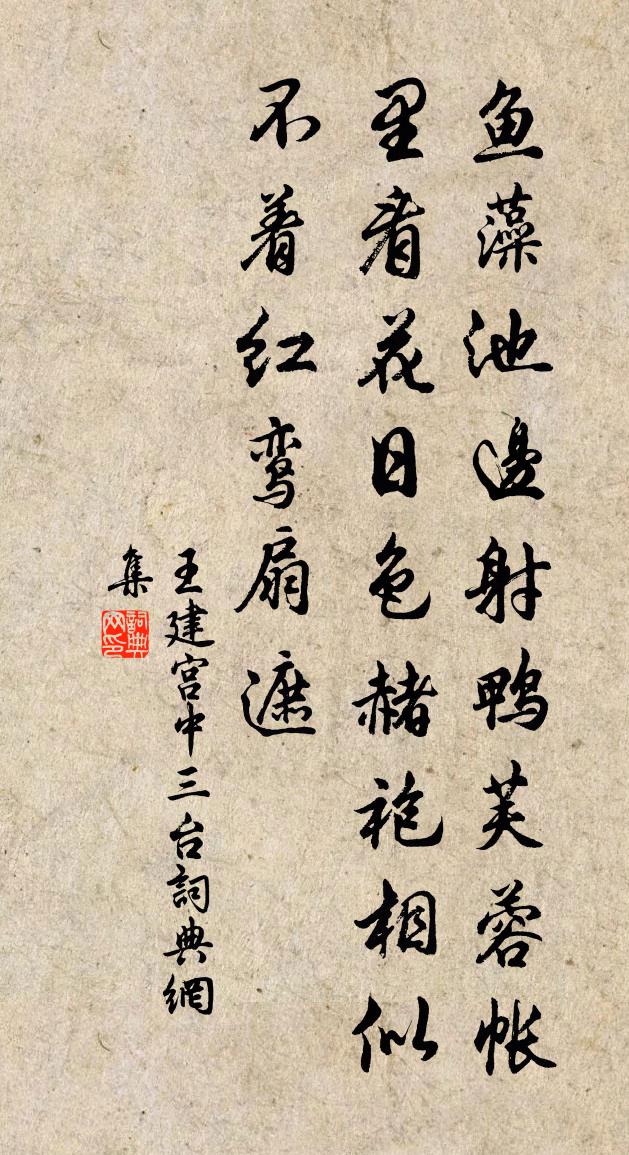 鱼藻池邊射鴨芙蓉帐
里看花日色赭袍相似
不着红鸾扇遮
王建宫中三台詞典網
集
詞典
网印